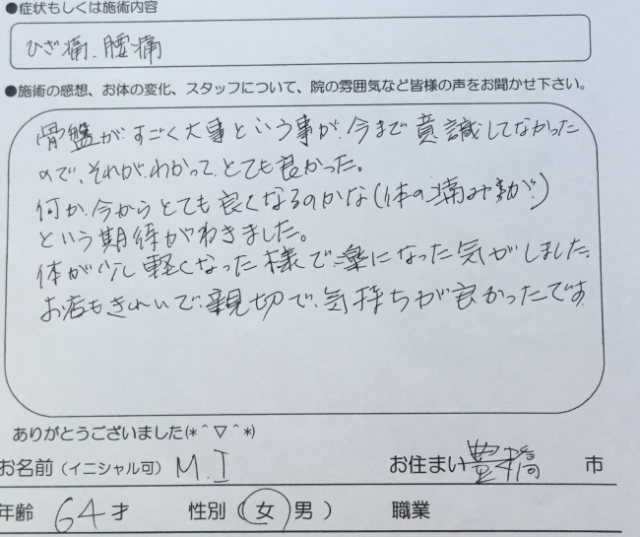 ●症状もしくは施術内容
ひざ痛、腰痛
●施術の感想、お体の変化、スタッフについて、院の雰囲気など皆様の声をお聞かせ下さい。
骨盤が、すごく大事という事が、今まで意識してなかった
ので、それが、わかって、とても良かった。
何か、今からとても良くなるのかな(体の痛み が!)
という期待がわきました。
体が少し軽くなった様で、楽になった気がしました。
お店もきれいで、親切で、気持ちが良かったです
ありがとうございました(*＾▽＾*)
お名前(イニシャル可) M.I お住まい 豊橋 市
年齢 64才 性別(女 男) 職業